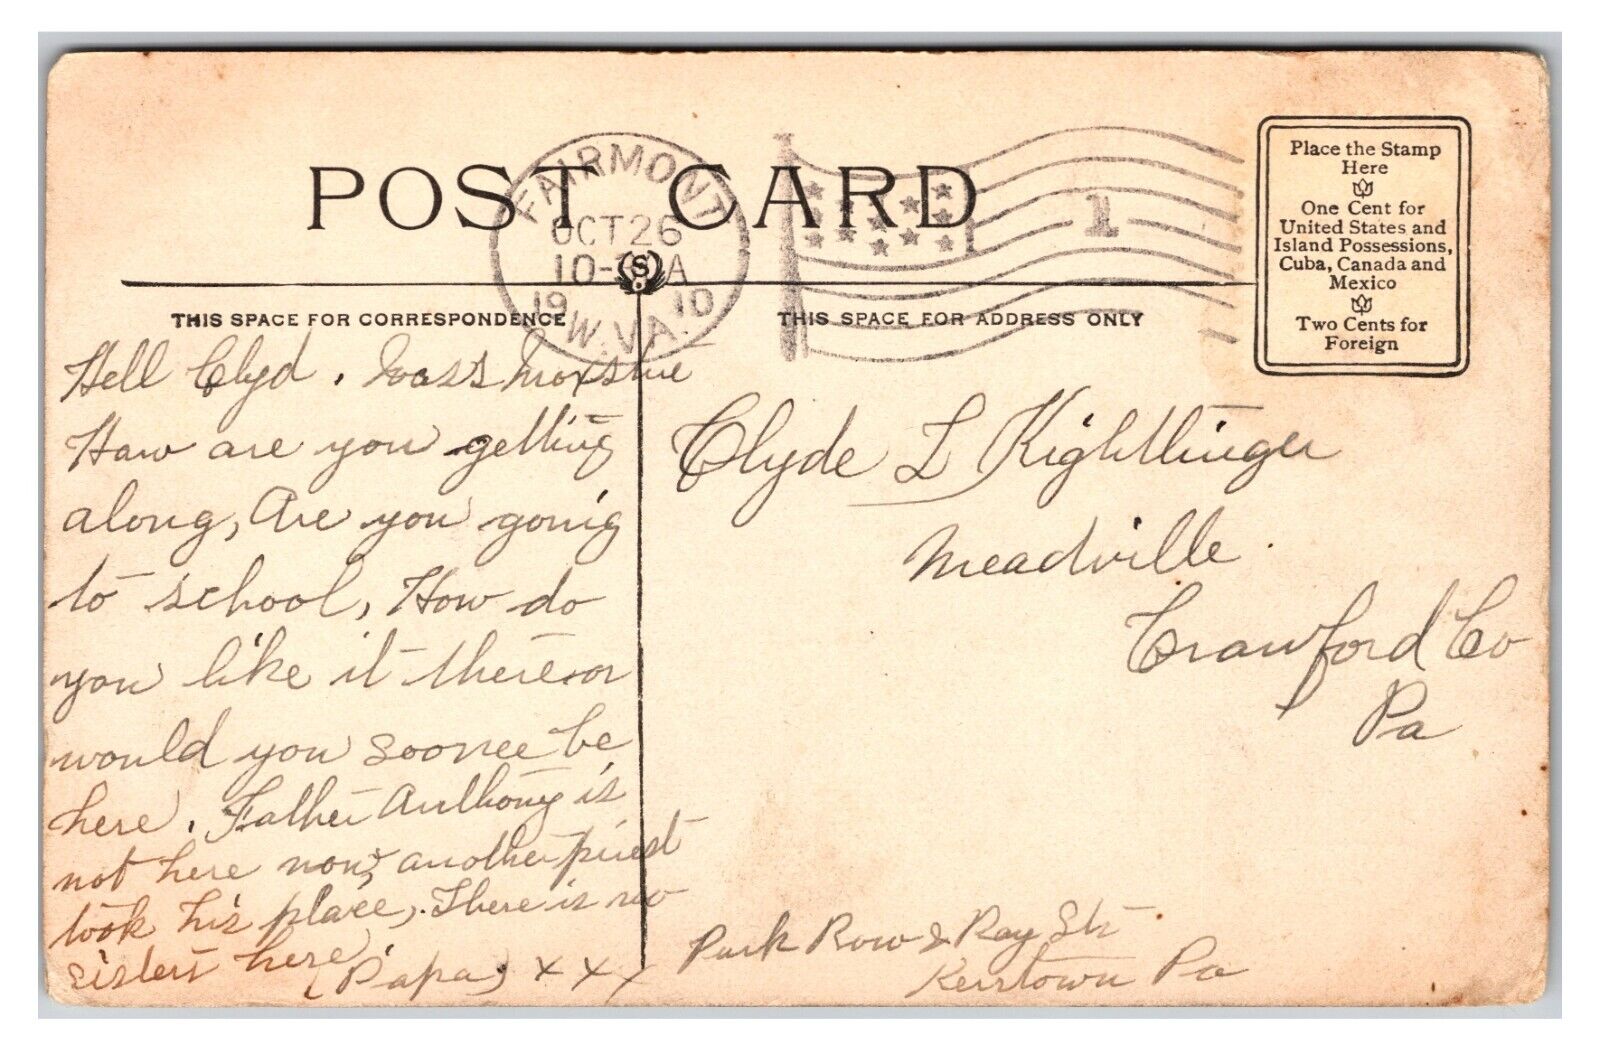 POST CARD
FAIRMONT
OCT 26
10- A
19 10
W. VA.
1
Place the Stamp
Here
One Cent for
United States and
Island Possessions,
Cuba, Canada and
Mexico
Two Cents for
Foreign
S
THIS SPACE FOR CORRESPONDENCE
THIS SPACE FOR ADDRESS ONLY
Hell Clyd.
Haw are you getting
along, Are you going
to school, How do
you like it there or
would you soonee be
here. Father Anthony is
not here now, another priest
took his place, There is no
sisters here
(Papa, x x x
Clyde L Kightlinger
Meadville.
Crawford Co
Pa
Park Row & Ray Sts
Kerrtown Pa